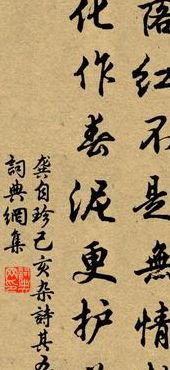 红不是無情
化作春泥更护
龔自珍己亥杂詩其五
詞典網集